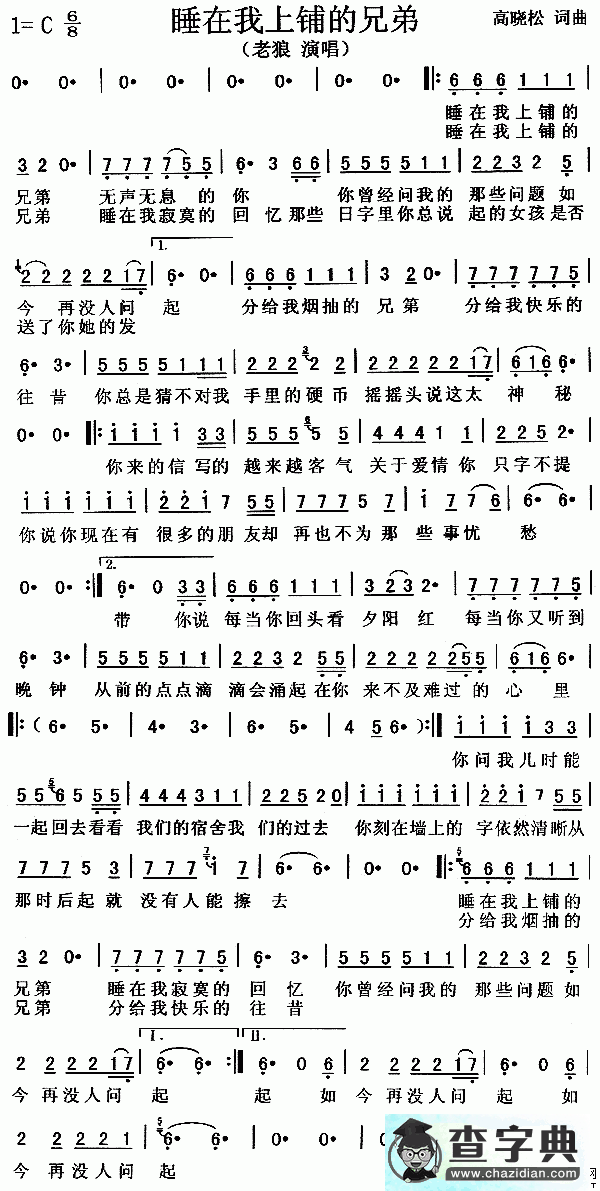 1=C 6/8 睡在我上铺的兄弟 高晓松 词曲
（老狼 演唱）
0· 0· | 0· 0· | 0· 0· | 0· 0· |: 6 6 6 1 1 1 |
睡在我上铺的
睡在我上铺的
3 2 0· | 7 7 7 7 5 5 | 6· 3 6 6 | 5 5 5 5 1 1 | 2 2 3 2 5 |
兄第 无声无息 的 你 你曾经问我的 那些问题 如
兄弟 睡在我寂寞的 回 忆那些 日字里你总说 起的女孩是否
1.
2 2 2 2 2 1 7 | 6· 0· | 6 6 6 1 1 1 | 3 2 0 | 7 7 7 7 7 5 |
今 再没人问 起 分给我烟抽的 兄 第 分给我快乐的
送了你她的发
6· 3· | 5 5 5 5 1 1 1 | 2 2 2 2 | 2 2 2 2 2 1 7 | 6 1 6 6· |
往 昔 你总是猜不对我 手里的硬 币 摇摇头说这太 神 秘
0· 0· |: i i i i 3 3 | 5 5 5 5 5 | 4 4 4 4 1 1 | 2 2 5 2· |
你来的信 写的 越来越客 气 关于爱情 你 只字不提
i i i i i i | 2 2 i 7 5 5 | 7 7 7 5 3 | i 7 7 6 | 6· 6· |
你说你现在有 很多的朋友却 再也不为 那 些事忧 愁
2.
0· 0· :| 6· 0 3 3 | 6 6 6 1 1 1 | 3 2 3 2· | 7 7 7 7 7 5 |
带 你说 每当你回头看 夕阳 红 每当你又听到
6· 3· | 5 5 5 5 1 1 | 2 2 3 2 5 5 | 2 2 2 2 2 5 5 | 6 1 6 6· |
晚 钟 从前的点点滴 滴会涌起 在你 来不及难过 的 心 里
|: ( 6· 5· | 4· 3· | 6· 5· | 2· 6· | 4 5 0· ) :| i i i i 3 3 |
你问我儿时能
5 5 6 5 5 5 | 4 4 4 3 1 1 | 2 2 5 2 0 | i i i i i i | 2 2 i 7 5 |
一起回去看看 我们的宿舍我 们的过去 你刻在墙上的 字依然清晰从
7 7 7 5 3 | 7 7 7 i 7 | 6· 6· | 0· 0· :|: 6 6 6 1 1 1 |
那时后起 就 没有人能 擦 去 睡在我上铺的
分给我烟抽的
3 2 0· | 7 7 7 7 7 5 | 6· 3· | 5 5 5 5 1 1 | 2 2 3 2 5 |
兄第 睡在我寂寞的 回 忆 你曾经问我的 那些问题 如
兄第 分给我快乐的 往 昔
I. II.
2 2 2 2 1 7 | 6· 6· :| 6· 0 2 | 2 2 2 2 1 7 | 6· 0 2 |
今 再没人问 起 起 如 今 再没人问 起 如
2 2 2 2 1 | 6· 6· | 0· 0·
今 再没人问 起
查字典
www.chazidian.com